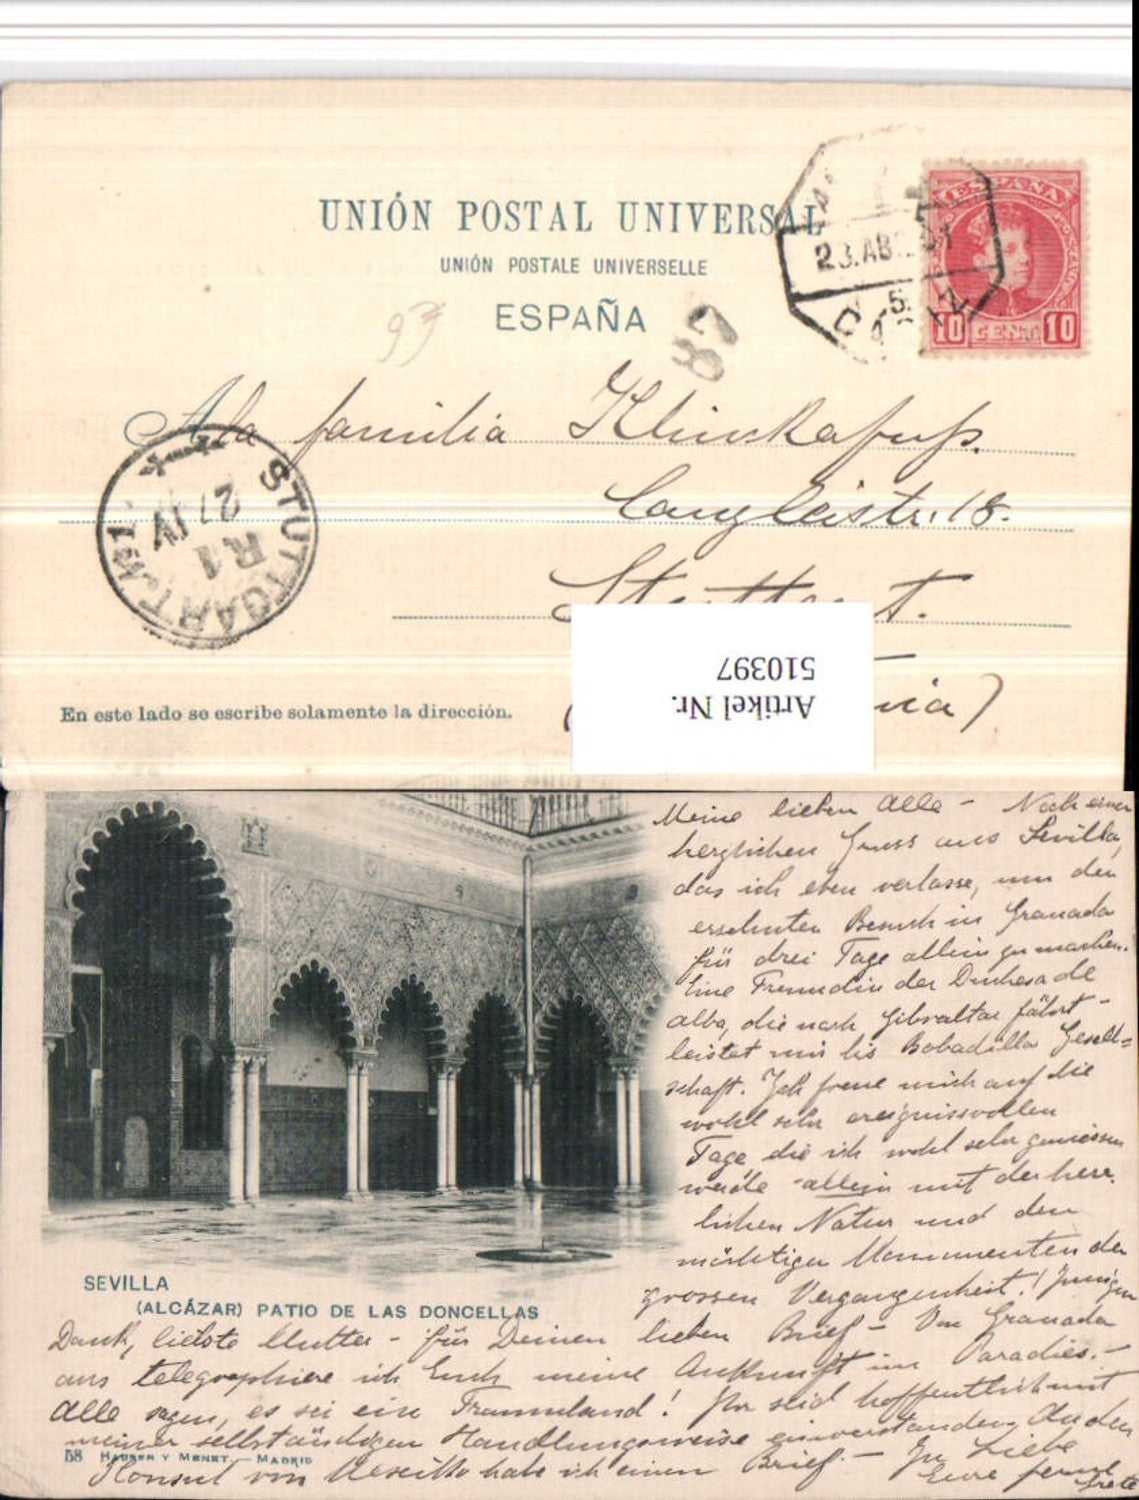 UNIÓN POSTAL UNIVERSAL
UNIÓN POSTALE UNIVERSELLE
ESPAÑA
ESPAÑA
10 CENT. 10
23.ABR.01
5
CADIZ
93
87
A la familia Klinckerfuss.
Canzleistr. 18.
Stuttgart.
STUTTGART
27 IV
R1
510397
Artikel Nr.
En este lado se escribe solamente la dirección.
Meine lieben Alle – Noch einen
herzlichen Gruss aus Sevilla,
das ich eben verlasse, um den
ersehnten Besuch in Granada
für drei Tage allein zu machen.
Eine Freundin der Duchesa de
Alba, die nach Gibraltar fährt –
leistet mir bis Bobadilla Gesell=
schaft. Ich freue mich auf die
wohl sehr ereignissvollen
Tage die ich wohl sehr geniessen
werde – allein mit der herr-
lichen Natur und den
mächtigen Monumenten der
grossen Vergangenheit! Innigen
SEVILLA
(ALCÁZAR) PATIO DE LAS DONCELLAS
Dank, liebste Mutter – für Deinen lieben Brief – Von Granada
aus telegraphiere ich Euch meine Ankunft im Paradies. –
Alle sagen, es sei ein Traumland! Ihr seid hoffentlich mit
meiner selbständigen Handlungsweise einverstanden.
58 HAUSER Y MENET.– MADRID
Konsul von habe ich einen Brief. – In Liebe
Eure ferne